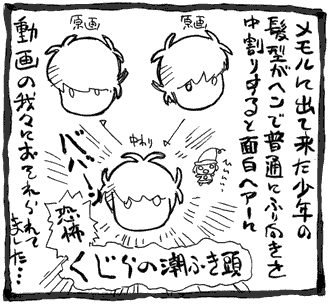 メモルに出て来た少年の
髪型がヘンで普通にふり向きを
中割りすると面白ヘアーに
原画
原画
中わり
ババーン
恐怖
くじらの潮ふき頭
動画の我々におそれられて
ました…